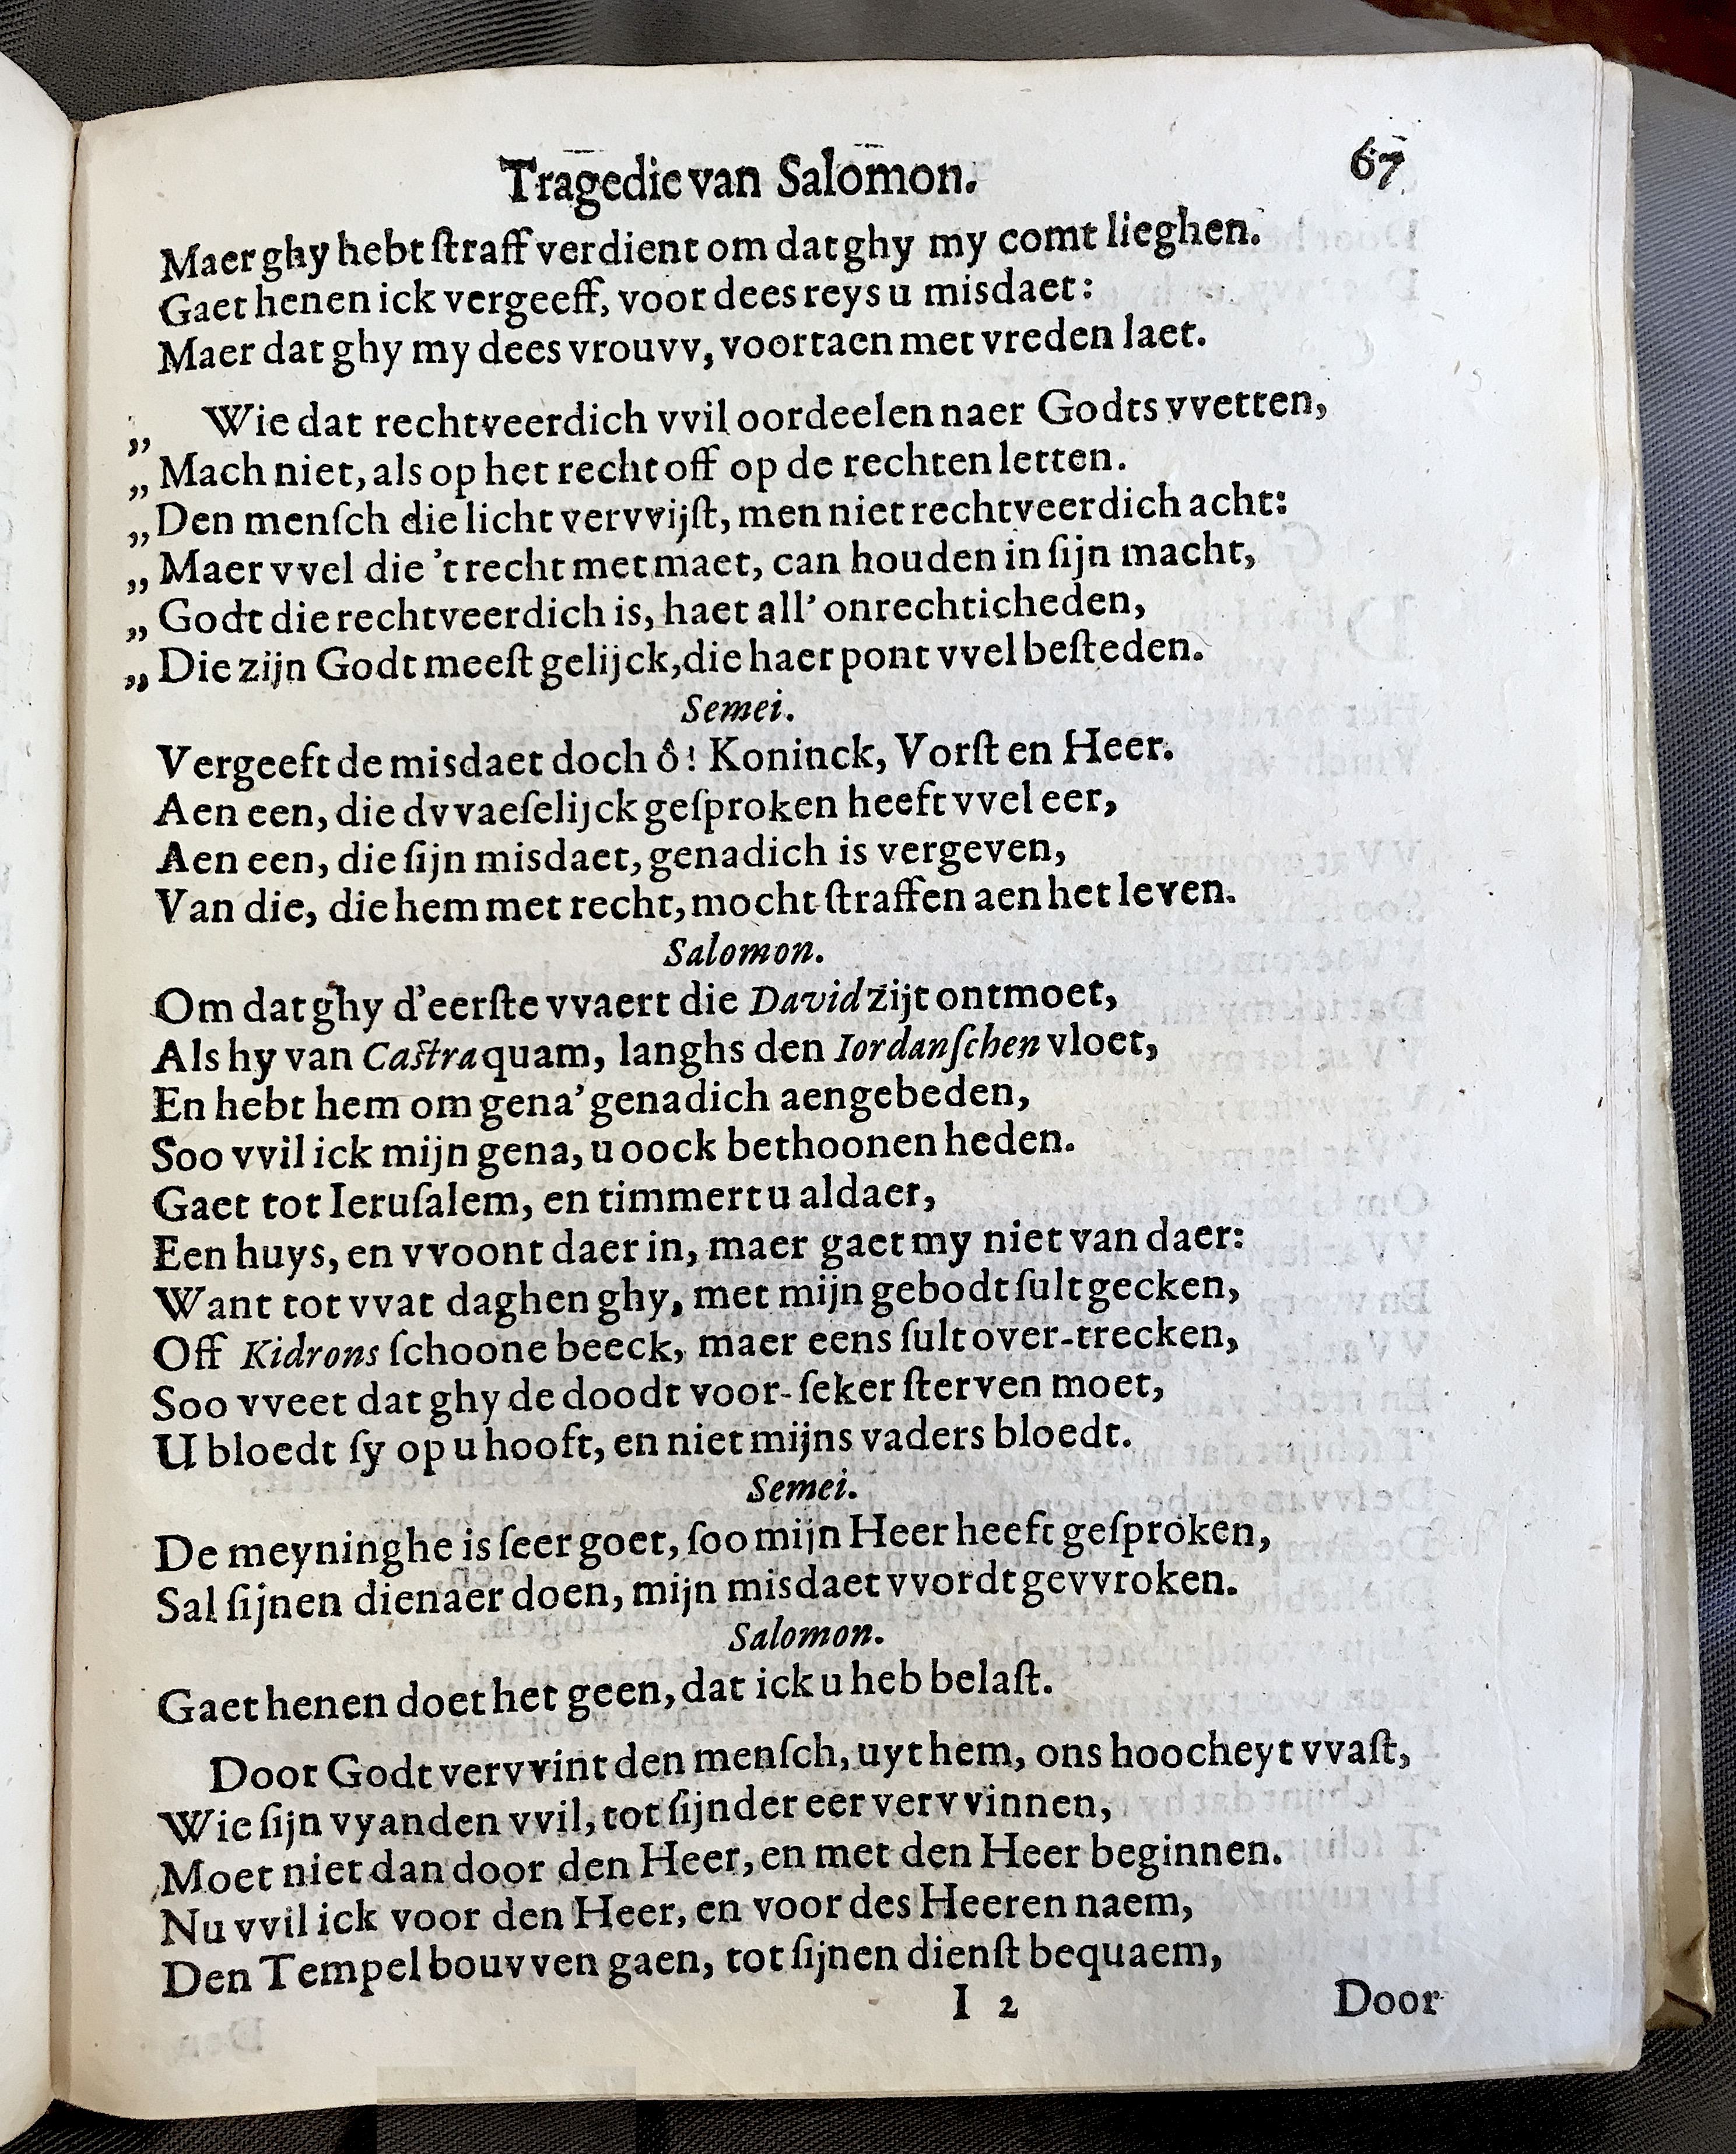 Tragedie van Salomon. 67
Maer ghy hebt ſtraff verdient om dat ghy my comt lieghen.
Gaet henen ick vergeeff, voor dees reys u misdaet:
Maer dat ghy my dees vrouvv, voortaen met vreden laet.
„ Wie dat rechtveerdich vvil oordeelen naer Godts vvetten,
„ Mach niet, als op het recht off op de rechten letten.
„ Den menſch die licht vervvijſt, men niet rechtveerdich acht:
„ Maer vvel die 't recht met maet, can houden in ſijn macht,
„ Godt die rechtveerdich is, haet all' onrechticheden,
„ Die zijn Godt meeſt gelijck, die haer pont vvel beſteden.
Semei.
Vergeeft de misdaet doch ô! Koninck, Vorſt en Heer.
Aen een, die dvvaeſelijck geſproken heeft vvel eer,
Aen een, die ſijn misdaet, genadich is vergeven,
Van die, die hem met recht, mocht ſtraffen aen het leven.
Salomon.
Om dat ghy d'eerſte vvaert die David zijt ontmoet,
Als hy van Caſtra quam, langhs den Iordanſchen vloet,
En hebt hem om gena' genadich aengebeden,
Soo vvil ick mijn gena, u oock bethoonen heden.
Gaet tot Ieruſalem, en timmert u aldaer,
Een huys, en vvoont daer in, maer gaet my niet van daer:
Want tot vvat daghen ghy, met mijn gebodt ſult gecken,
Off Kidrons ſchoone beeck, maer eens ſult over-trecken,
Soo vveet dat ghy de doodt voor-ſeker ſterven moet,
U bloedt ſy op u hooft, en niet mijns vaders bloedt.
Semei.
De meyninghe is ſeer goet, ſoo mijn Heer heeft geſproken,
Sal ſijnen dienaer doen, mijn misdaet vvordt gevvroken.
Salomon.
Gaet henen doet het geen, dat ick u heb belaſt.
Door Godt vervvint den menſch, uyt hem, ons hoocheyt vvaſt,
Wie ſijn vyanden vvil, tot ſijnder eer vervvinnen,
Moet niet dan door den Heer, en met den Heer beginnen.
Nu vvil ick voor den Heer, en voor des Heeren naem,
Den Tempel bouvven gaen, tot ſijnen dienſt bequaem,
I 2 Door